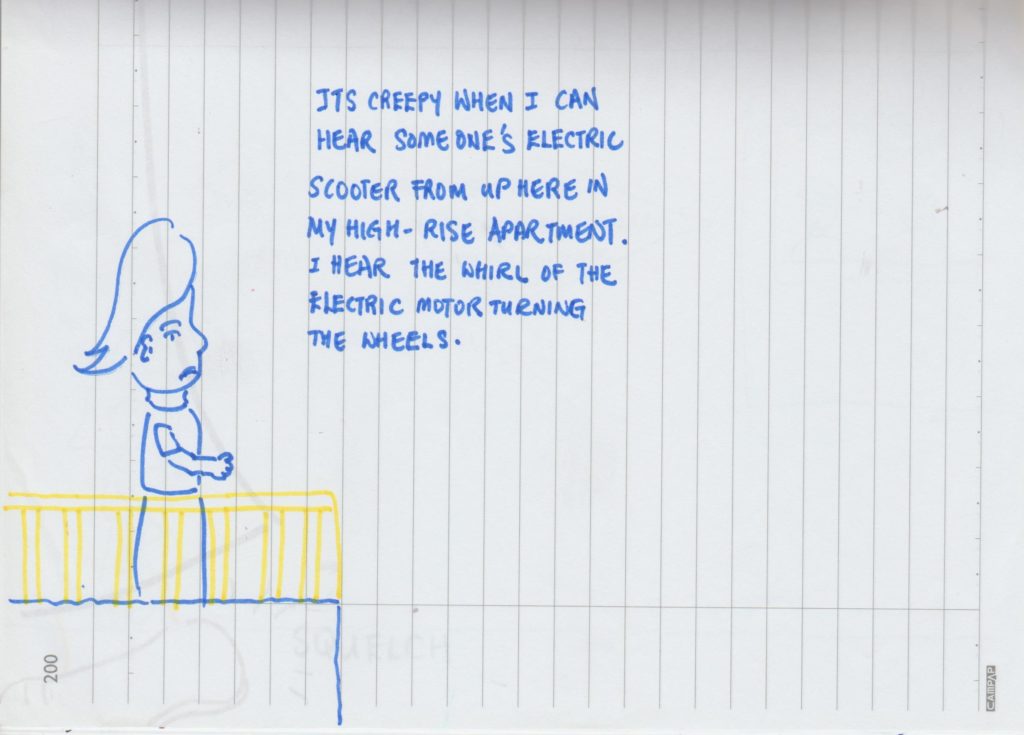 ITS CREEPY WHEN I CAN
HEAR SOMEONE'S ELECTRIC
SCOOTER FROM UP HERE IN
MY HIGH-RISE APARTMENT.
I HEAR THE WHIRL OF THE
ELECTRIC MOTOR TURNING
THE WHEELS.
SQUELCH
200
CAMPAP